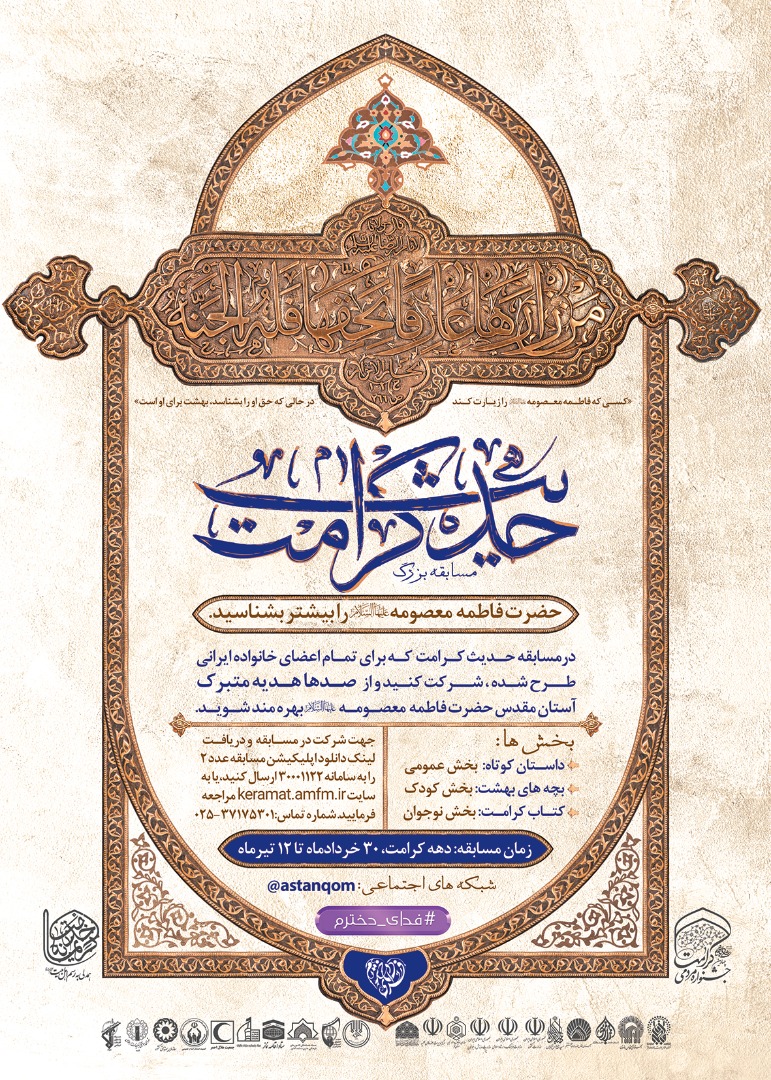 من زارها عارفا بحقها فله الجنة
«کسی که فاطمه معصومه را زیارت کند در حالی که حق او را بشناسد، بهشت برای او است»
حدیث کرامت
مسابقه بزرگ
حضرت فاطمه معصومه علیهاالسلام را بیشتر بشناسید.
در مسابقه حدیث کرامت که برای تمام اعضای خانواده ایرانی
طرح شده، شرکت کنید و از صدها هدیه متبرک
آستان مقدس حضرت فاطمه معصومه علیهاالسلام بهره مند شوید.
بخش ها:
داستان کوتاه: بخش عمومی
بچه های بهشت: بخش کودک
کتاب کرامت: بخش نوجوان
جهت شرکت در مسابقه و دریافت
لینک دانلود اپلیکیشن مسابقه عدد ۲
را به سامانه ۳۰۰۰۱۱۲۲ ارسال کنید، یا به
سایت keramat.amfm.ir مراجعه
فرمایید. شماره تماس: ۳۷۱۷۵۳۰۱-۰۲۵
زمان مسابقه: دهه کرامت، ۳۰ خردادماه تا ۱۲ تیرماه
شبکه های اجتماعی: @astanqom
#فدای_دخترم
کرامت
جشنواره مردمی